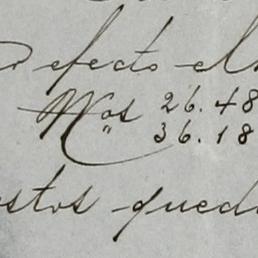 efecto el
Nos 26.48
" 36.18
stos qued